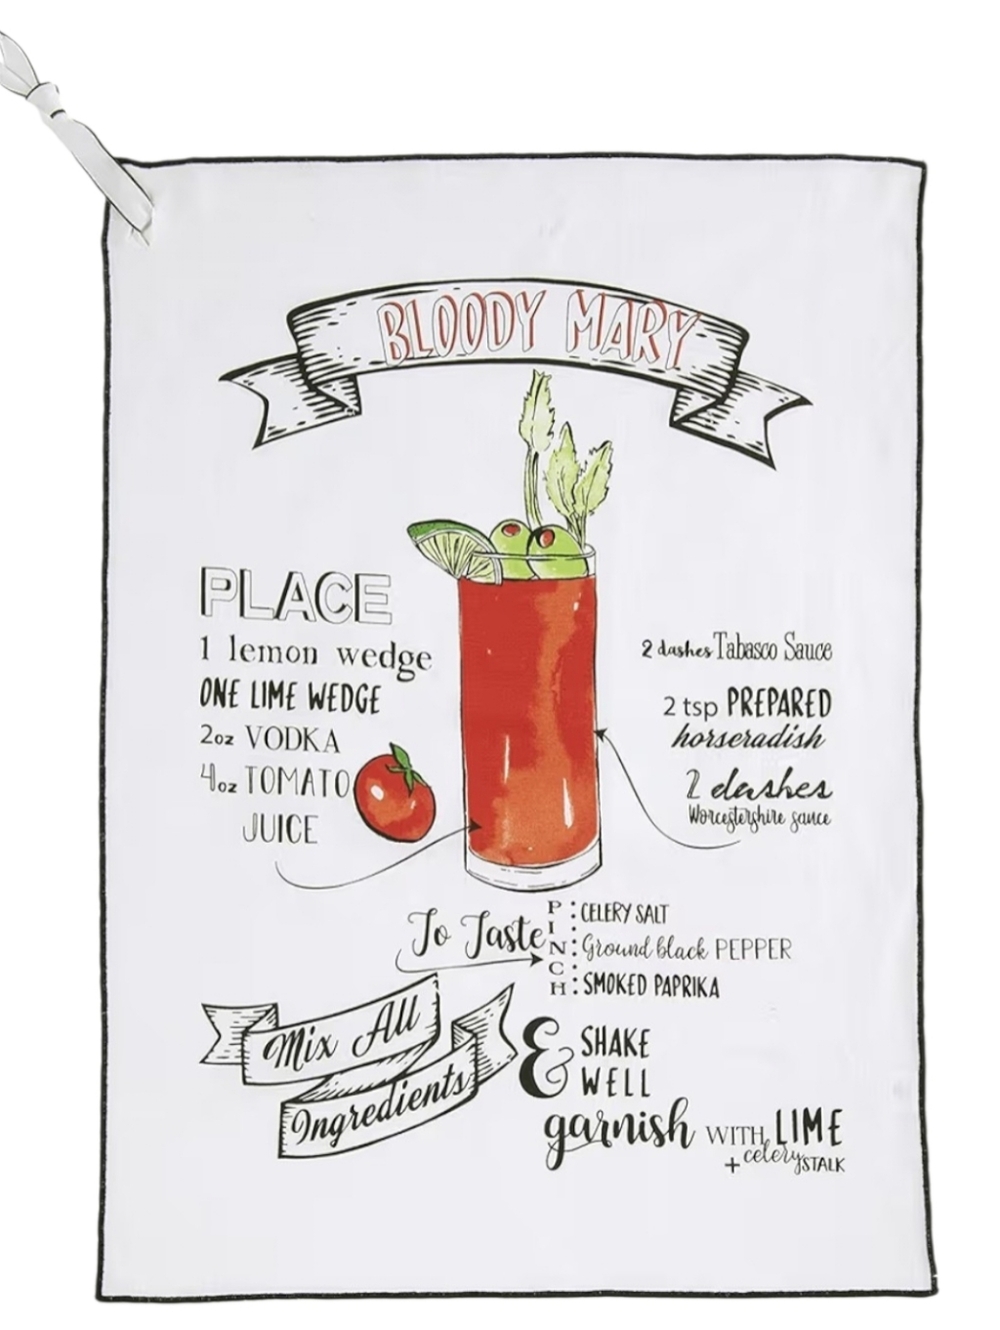 BLOODY MARY
PLACE
1 lemon wedge
ONE LIME WEDGE
2oz VODKA
4oz TOMATO
JUICE
2 dashes Tabasco Sauce
2 tsp PREPARED
horseradish
2 dashes
Worcestershire sauce
To Taste
PINCH
: CELERY SALT
: Ground black PEPPER
: SMOKED PAPRIKA
Mix All
Ingredients
& SHAKE
WELL
garnish WITH LIME
+ celery STALK